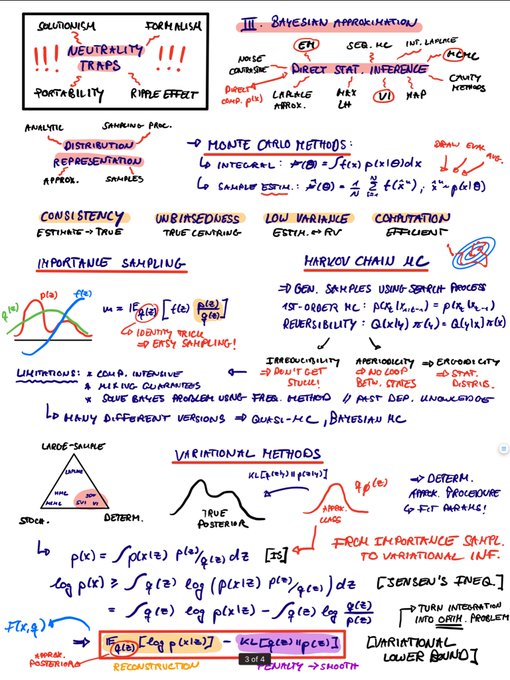 SOLUTIONISM
FORMALISM
!!! NEUTRALITY !!!
TRAPS
PORTABILITY
RIPPLE EFFECT
III. BAYESIAN APPROXIMATION
EM
SEQ. MC
INT. LAPLACE
MCMC
NOISE
CONTRASTIVE
DIRECT STAT. INFERENCE
DIRECT
COMP. p(x)
LAPLACE
APPROX.
MAX
LH
VI
MAP
CAVITY
METHODS
ANALYTIC
SAMPLING PROC.
DISTRIBUTION
REPRESENTATION
APPROX.
SAMPLES
→ MONTE CARLO METHODS:
↳ INTEGRAL: F(θ) = ∫f(x) p(x|θ)dx
↳ SAMPLE ESTIM.:
DRAW EVAL AVG.
CONSISTENCY
UNBIASEDNESS
LOW VARIANCE
COMPUTATION
ESTIMATE → TRUE
TRUE CENTRING
ESTIM. ↔ RV
EFFICIENT
IMPORTANCE SAMPLING
q(z)
p(z)
f(z)
IDENTITY TRICK
⇒ EASY SAMPLING!
MARKOV CHAIN MC
⇒ GEN. SAMPLES USING SEARCH PROCESS
1ST-ORDER MC: p(x_t|x_{1:t-1}) = p(x_t|x_{t-1})
REVERSIBILITY: Q(x|y) π(y) = Q(y|x) π(x)
IRREDUCIBILITY
APERIODICITY ⇒ ERGODICITY
⇒ DON'T GET
STUCK!
⇒ NO LOOP
BETW. STATES
⇒ STAT.
DISTRIB.
LIMITATIONS: * COMP. INTENSIVE
* MIXING GUARANTEES
* SOLVE BAYES PROBLEM USING FREQ. METHOD // PAST DEP. KNOWLEDGE
↳ MANY DIFFERENT VERSIONS ⇒ QUASI-MC, BAYESIAN MC
VARIATIONAL METHODS
LARGE-SAMPLE
LAPLACE
HMC
MCMC
SVI
VI
STOCH.
DETERM.
TRUE
POSTERIOR
KL[q(z|y) || p(z|y)]
APPROX.
CLASS
⇒ DETERM.
APPROX. PROCEDURE
↳ FIT PARAMS!
FROM IMPORTANCE SAMPL.
TO VARIATIONAL INF.
↳ p(x) = ∫p(x|z) p(z)/q(z) q(z) dz [IS]
log p(x) ≥ ∫q(z) log (p(x|z) p(z)/q(z)) dz [JENSEN'S INEQ.]
= ∫q(z) log p(x|z) - ∫q(z) log q(z)/p(z)
→ TURN INTEGRATION
INTO OPTIM. PROBLEM
F(x,q)
⇒ E_q(z) [log p(x|z)] - KL[q(z) || p(z)]
[VARIATIONAL
LOWER BOUND]
APPROX.
POSTERIOR
RECONSTRUCTION
PENALTY → SMOOTH
3 of 4